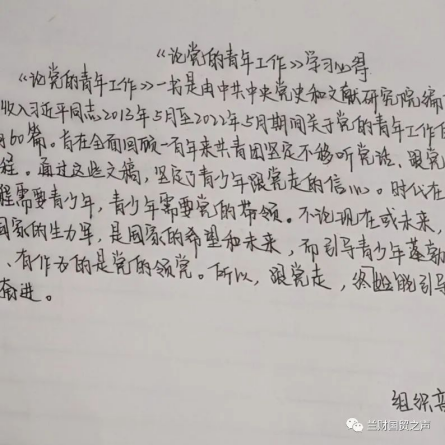 《论党的青年工作》学习心得
《论党的青年工作》一书是由中共中央党史和文献研究院编
收入习近平同志2013年5月至2022年5月期间关于党的青年工作
60篇。旨在全面回顾一百年来共青团坚定不移听党话、跟党
程。通过这些文稿，坚定了青少年跟党走的信心。时代在
程需要青少年，青少年需要党的带领。不论现在或未来，
国家的生力军，是国家的希望和未来，而引导青少年蓬勃
、有作为的是党的领党。所以，跟党走，能引导
奋进。
组织
兰财国贸之声